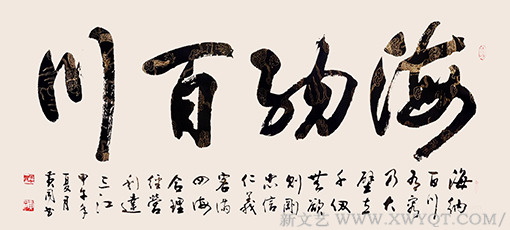 海纳百川
海纳
百川
有容
乃大
壁立
千仞
无欲
则刚
忠信
仁义
客满
四海
合理
经营
利达
三江
甲午年
夏月
新文艺 — WWW.XWYQT.COM